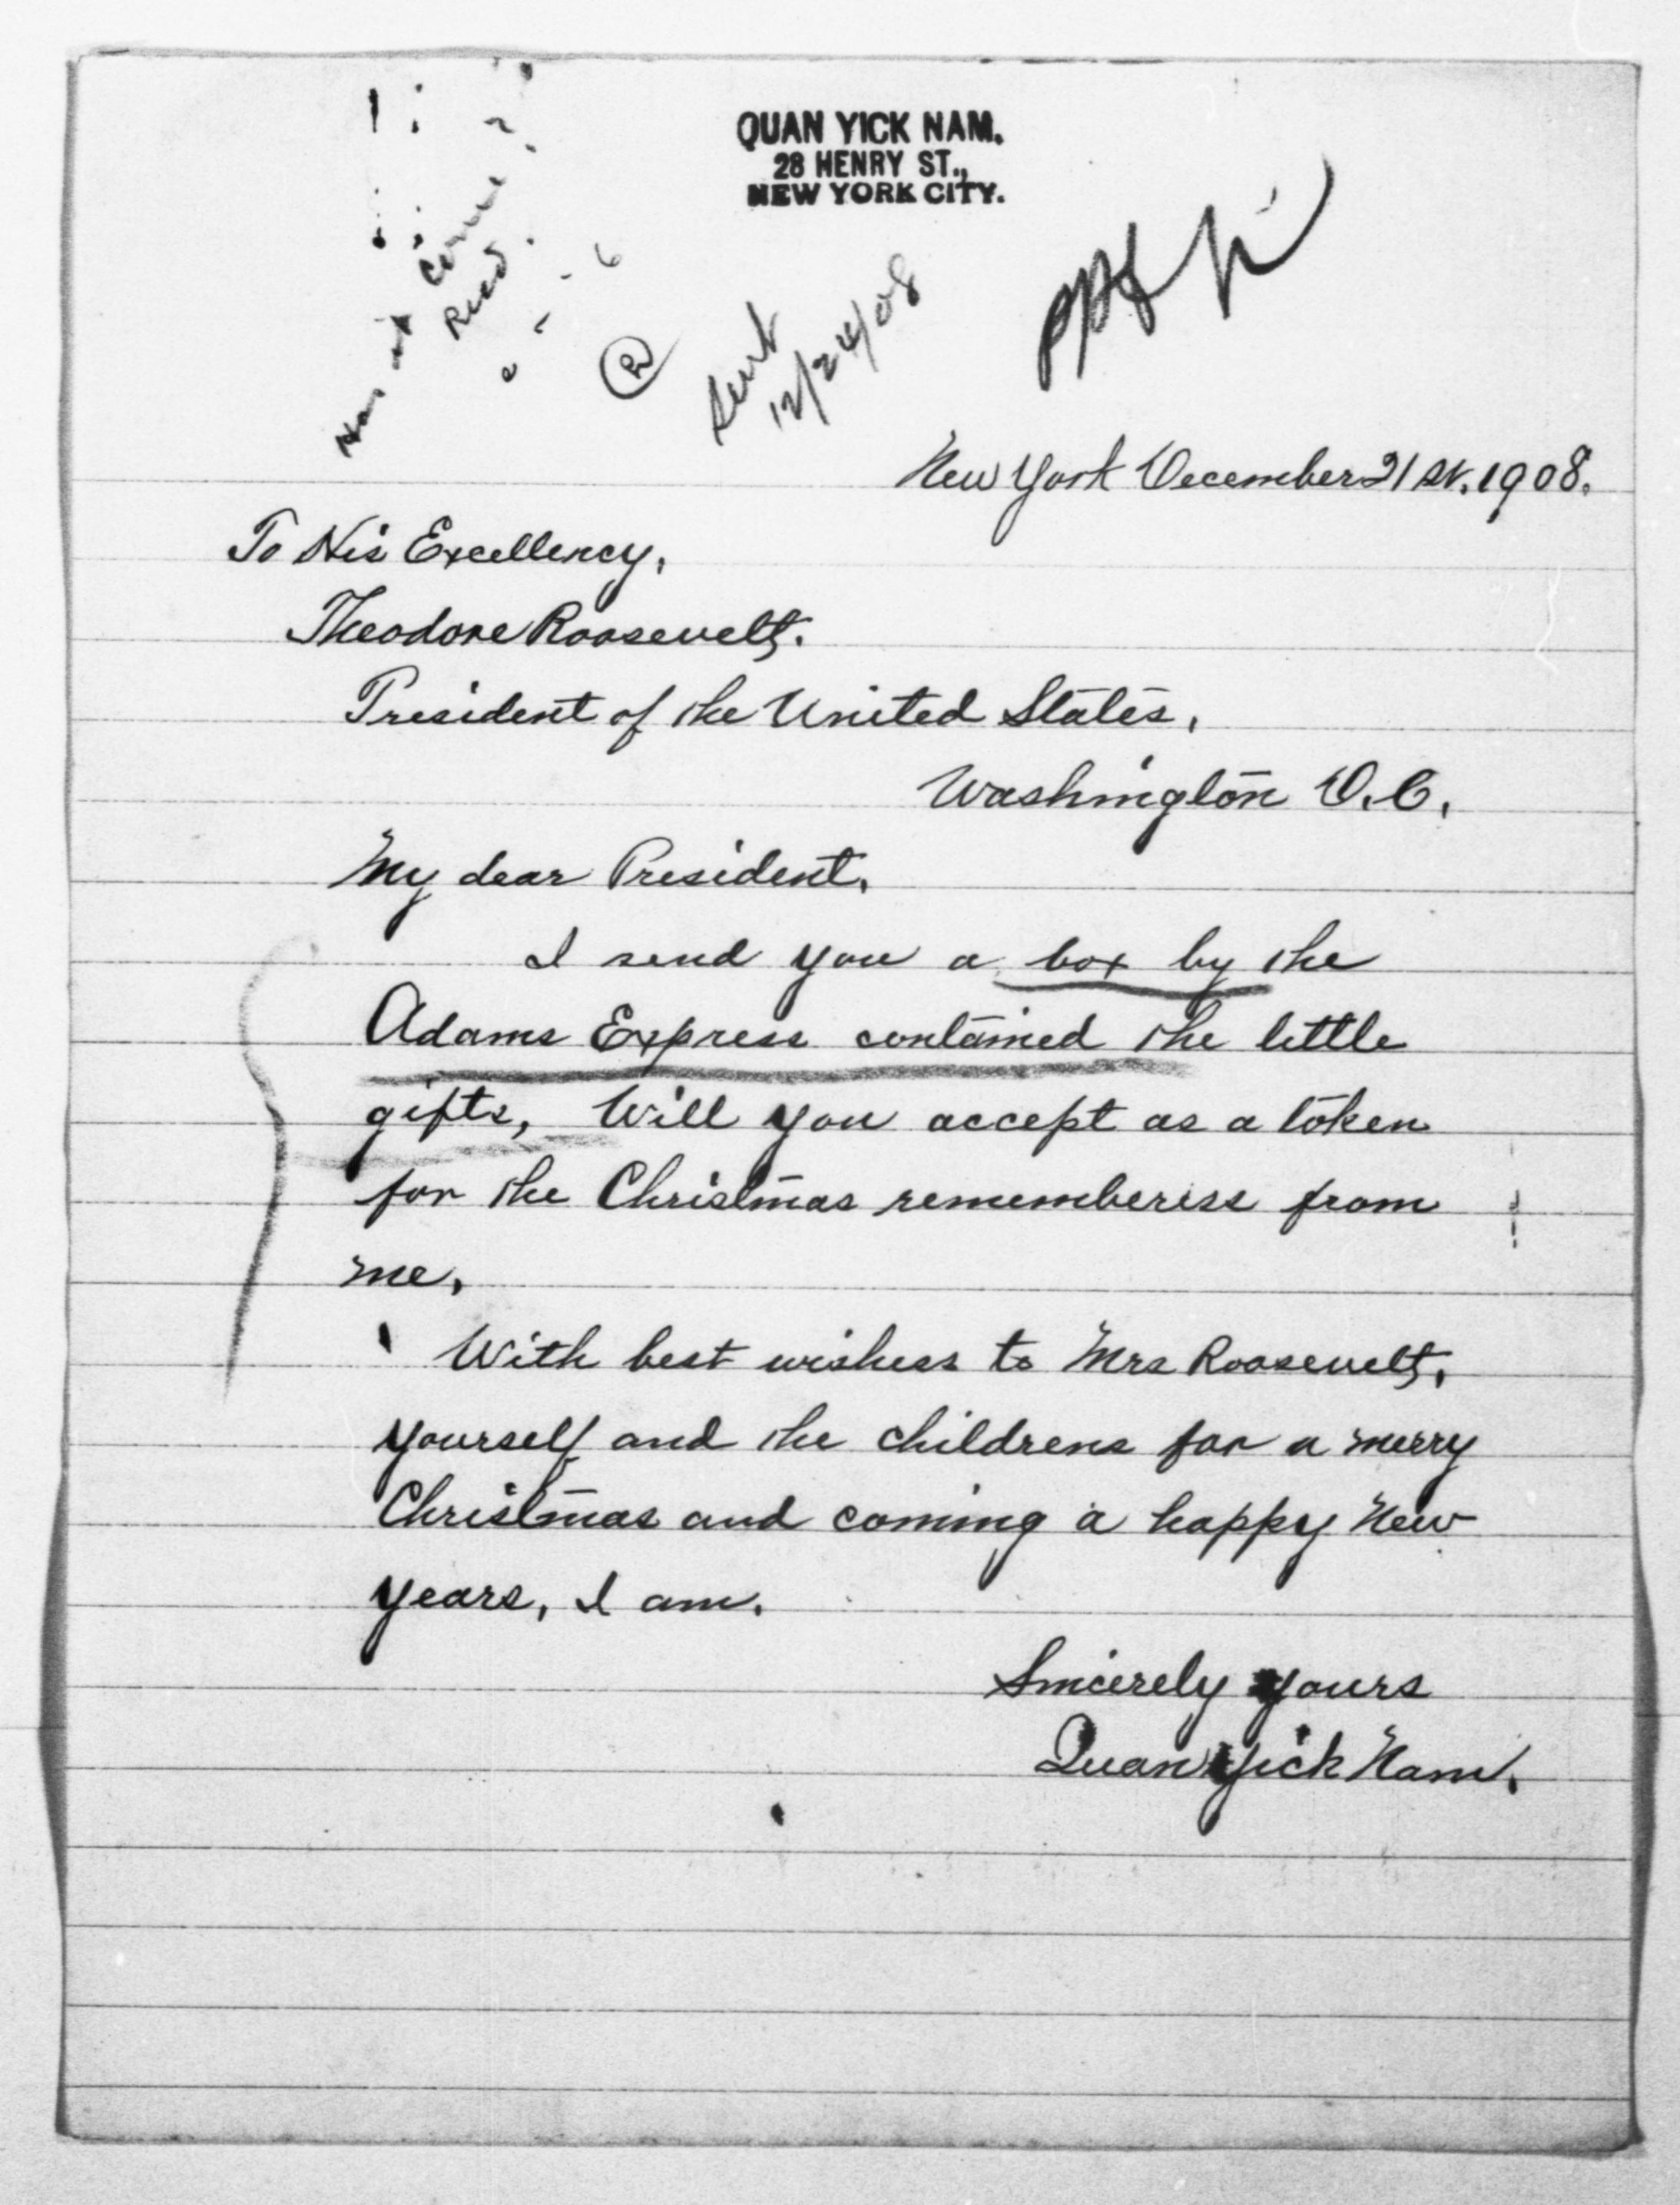 QUAN YICK NAM.
28 HENRY ST.,
NEW YORK CITY.
Has it come
Recd.
Sent
12/24/08
ppf
New York December 21st. 1908.
To His Excellency,
Theodore Roosevelt.
President of the United States,
Washington D.C.
My dear President,
I send you a box by the
Adams Express contained the little
gifts, Will you accept as a token
for the Christmas rememberess from
me,
With best wishess to Mrs Roosevelt,
yourself and the childrens for a merry
Christmas and coming a happy New
years, I am.
Sincerely yours
Quan Yick Nam.